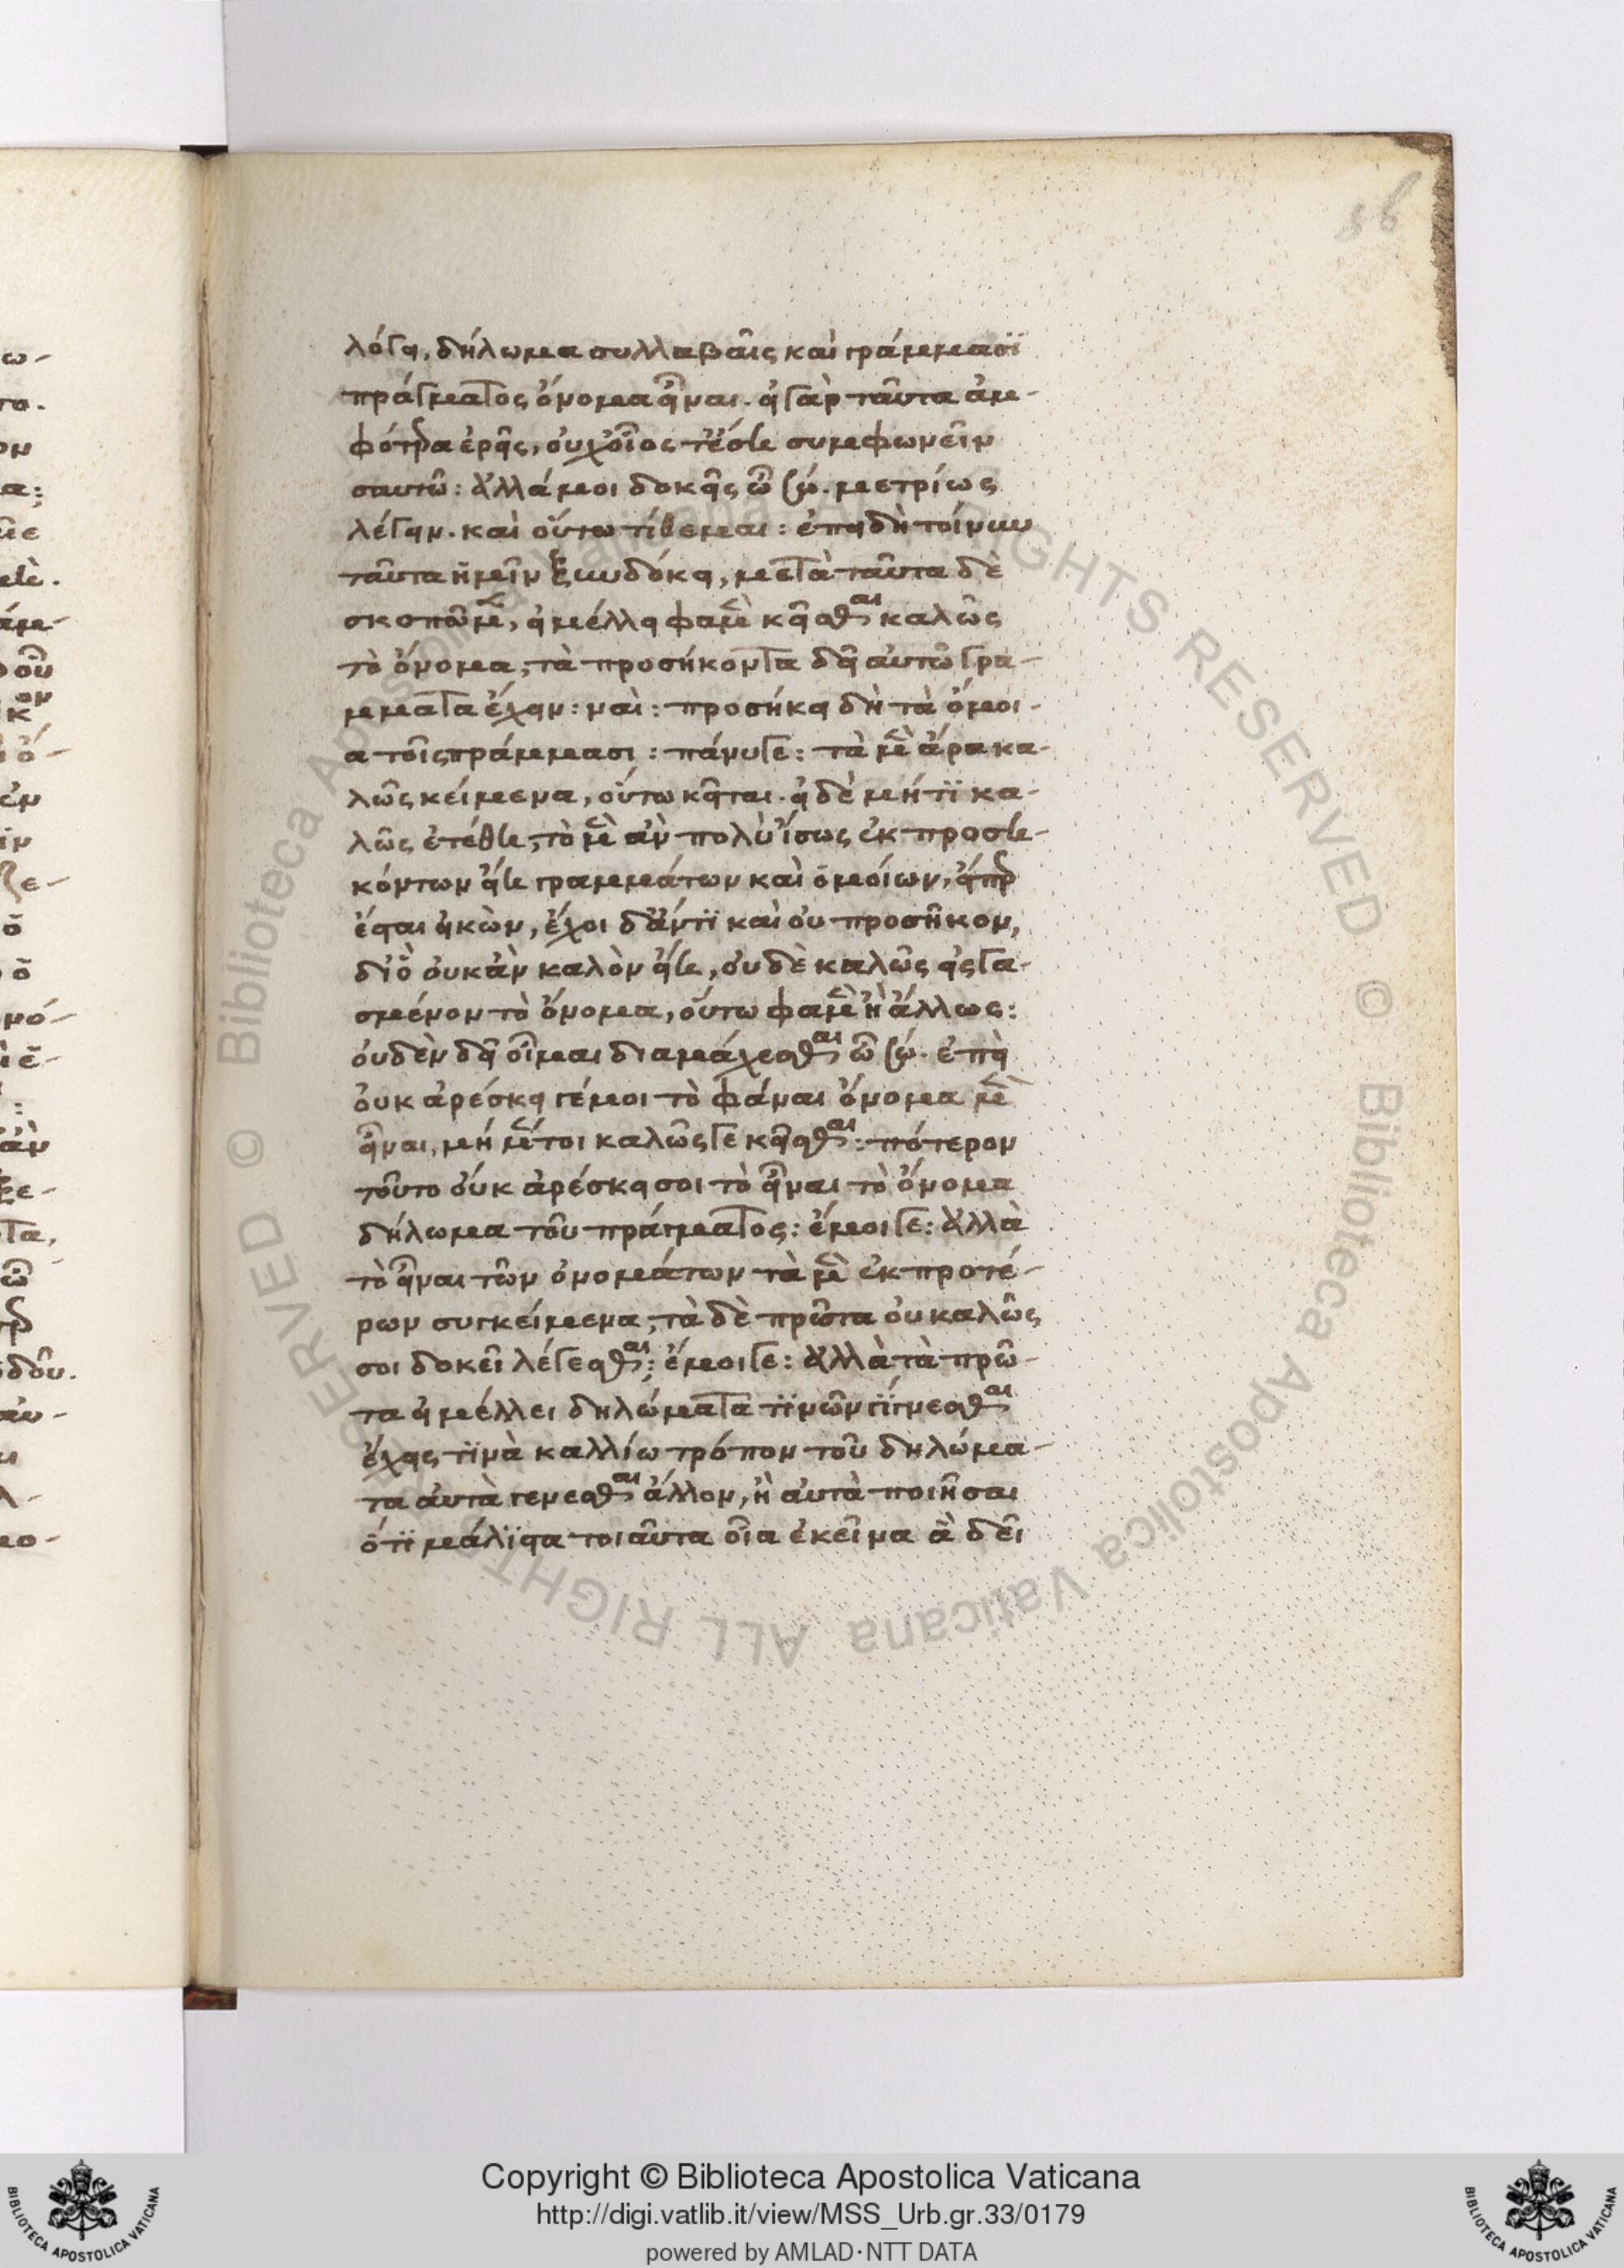 56
λόγει, δήλωμα συλλαβαῖς καὶ γράμμασϊ
πράγματος ὄνομα εἶναι. εἰ γὰρ ταῦτα ἀμ-
φότερα ἐρεῖς, οὐχ οἷός τἔσῃ συμφωνεῖν
σαυτῶ: ἀλλά μοι δοκεῖς ὦ σώ. μετρίως
λέγειν. καὶ οὕτω τίθεμαι: ἐπειδὴ τοίνυν
ταῦτα ἡμῖν ξυνδόκει, μετὰ ταῦτα δὲ
σκοπῶμεν, εἰ μέλλει φαμὲν κεῖσθαι καλῶς
τὸ ὄνομα, τὰ προσήκοντα δεῖ αὐτῶ γρά-
μματα ἔχειν: ναὶ: προσήκει δὴ τὰ ὅμοι-
α τοῖς πράγμασι: πάνυ γε: τὰ μὲν ἄρα κα-
λῶς κείμενα, οὕτω κεῖται. εἰ δὲ μή τϊ κα-
λῶς ἐτέθη, τὸ μὲν ἂν πολὺ ἴσως ἐκ προση-
κόντων εἴη γραμμάτων καὶ ὁμοίων, εἴπερ
ἔσται εἰκὼν, ἔχοι δἄν τϊ καὶ οὐ προσῆκον,
διὸ οὐκ ἂν καλὸν εἴη, οὐδὲ καλῶς εἰργα-
σμένον τὸ ὄνομα, οὕτω φαμὲν ἢ ἄλλως:
οὐδὲν δεῖ οἶμαι διαμάχεσθαι ὦ σώ. ἐπεὶ
οὐκ ἀρέσκει γέμοι τὸ φάναι ὄνομα μὲν
εἶναι, μή μέντοι καλῶς γε κεῖσθαι: πότερον
τοῦτο οὐκ ἀρέσκει σοι τὸ εἶναι τὸ ὄνομα
δήλωμα τοῦ πράγματος: ἔμοιγε: ἀλλὰ
τὸ εἶναι τῶν ὀνομάτων τὰ μὲν ἐκ προτέ-
ρων συγκείμενα, τὰ δὲ πρῶτα οὐ καλῶς
σοι δοκεῖ λέγεσθαι: ἔμοιγε: ἀλλὰ τὰ πρῶ-
τα εἰ μέλλει δηλώματα τϊνῶν γϊγνεσθαι
ἔχεις τϊνὰ καλλίω τρόπον τοῦ δηλώμα-
τα αὐτὰ γενεσθαι ἄλλον, ἢ αὐτὰ ποιῆσαι
ὅτϊ μάλϊστα τοιαῦτα οἷα ἐκεῖνα ἃ δεῖ
Copyright © Biblioteca Apostolica Vaticana
http://digi.vatlib.it/view/MSS_Urb.gr.33/0179
powered by AMLAD·NTT DATA